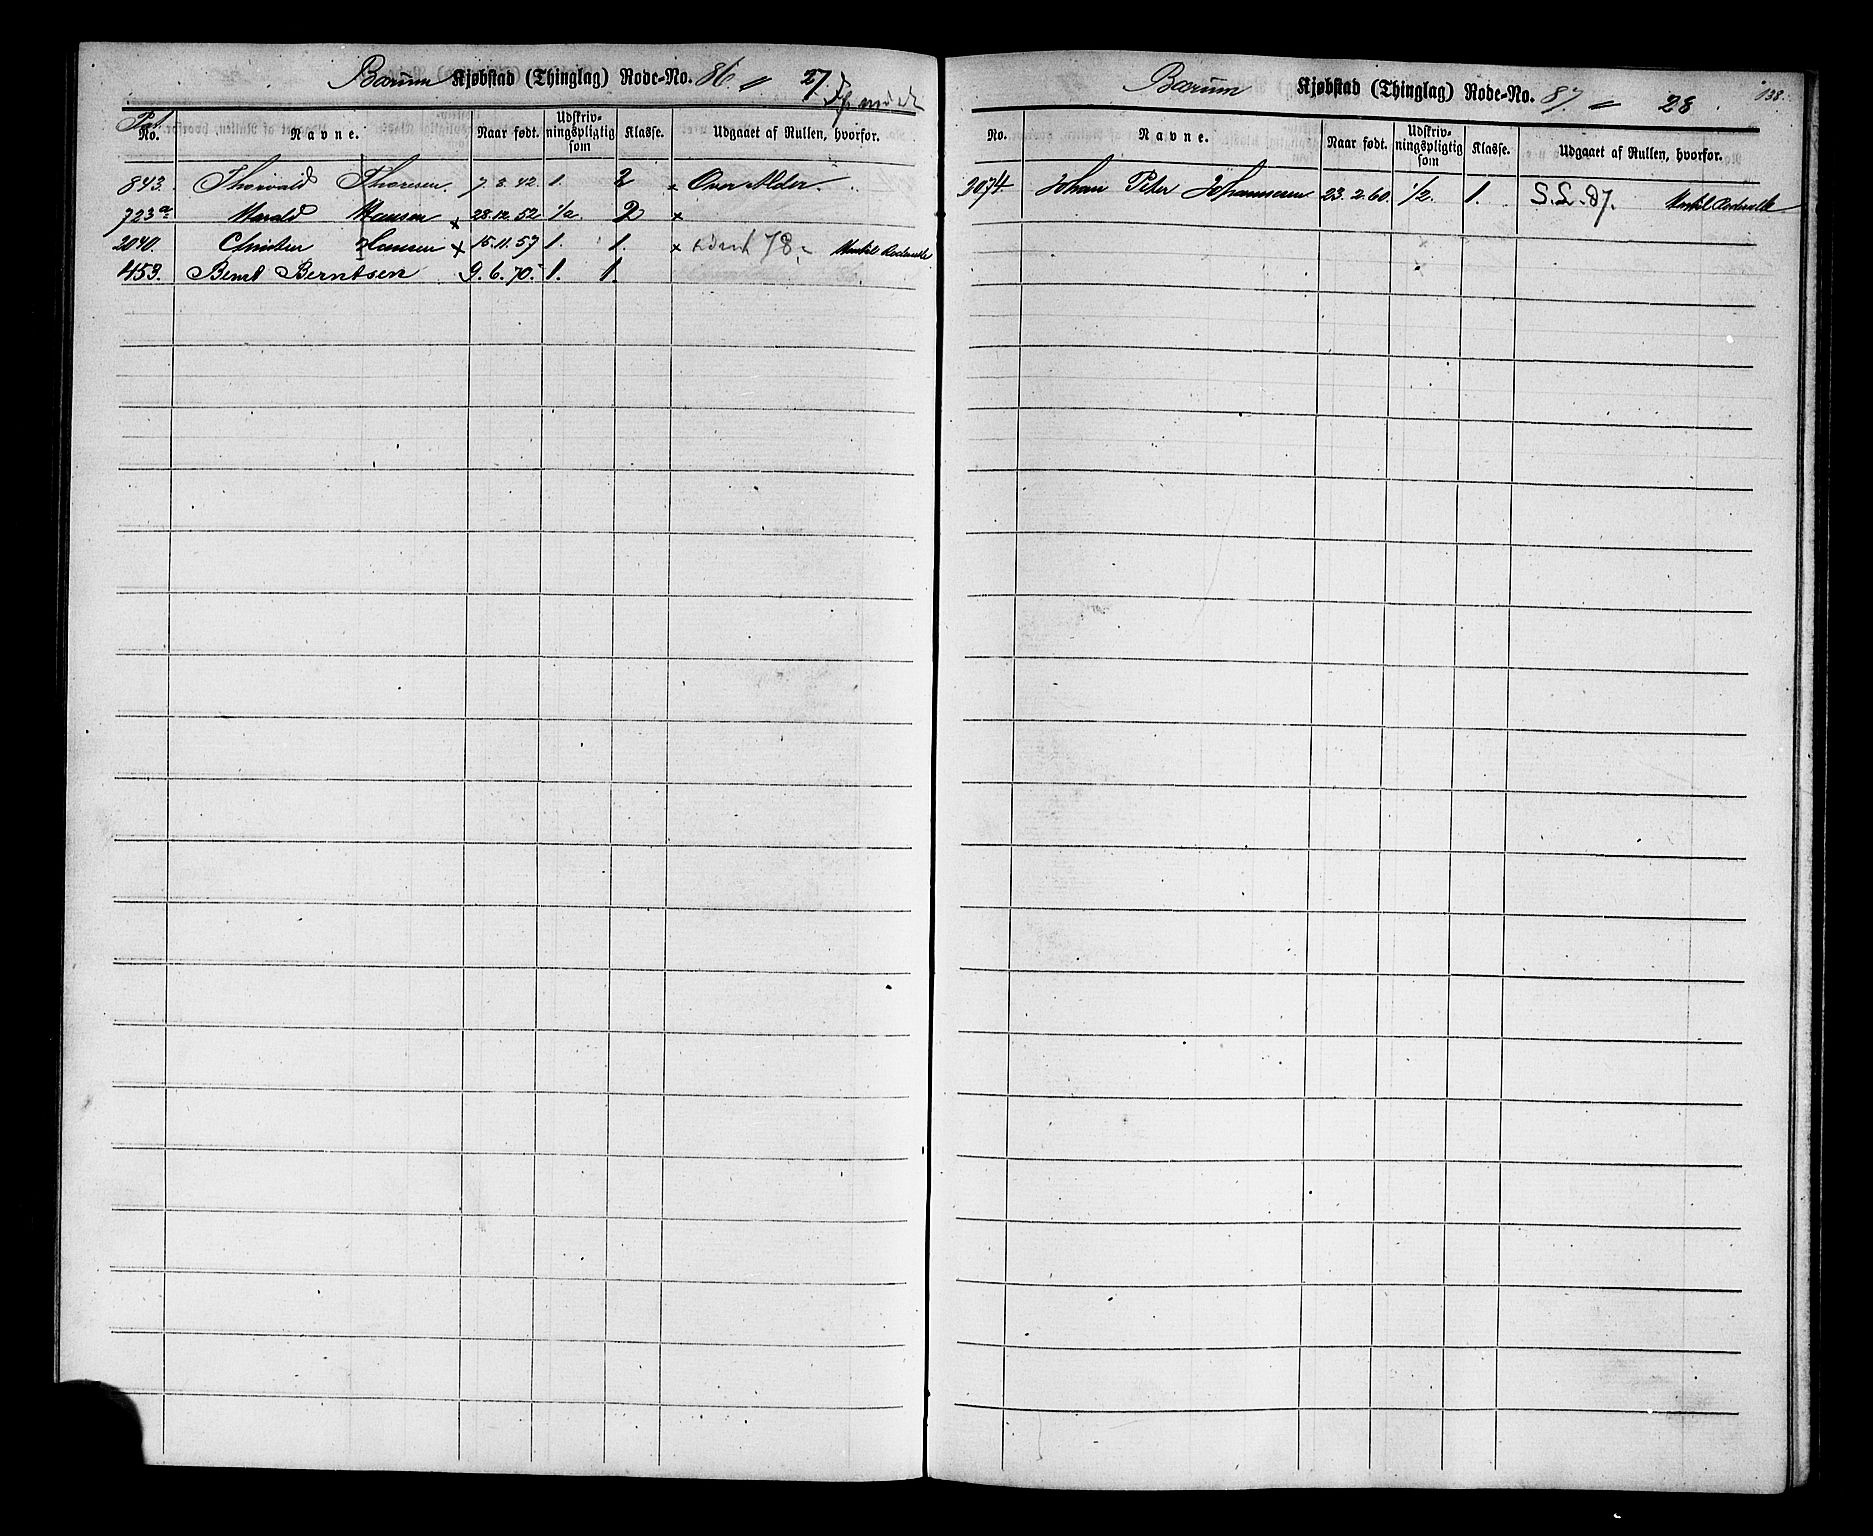 Bærum Kjøbstad (Thinglag) Rode-No. 86. " 27
No. Navne. Naar født. Udskriv-ningspligtig som Klasse. Udgaaet af Rullen, hvorfor.
843. Thorvald Thoresen 7.8.42. 1. 2 " Over Alder.
723 a Harald Hansen x 28.12.52 1/2 2 x
2040. Christen Hansen x 15.11.57 1. 1. x 78.
453. Bernt Berntsen 9.6.70. 1. 1.
Bærum Kjøbstad (Thinglag) Rode-No. 87. " 28 138.
No. Navne. Naar født. Udskriv-ningspligtig som Klasse. Udgaaet af Rullen, hvorfor.
2074. Johan Peter Johannesen 23.2.60. 1/2. 1. S.L. 87.